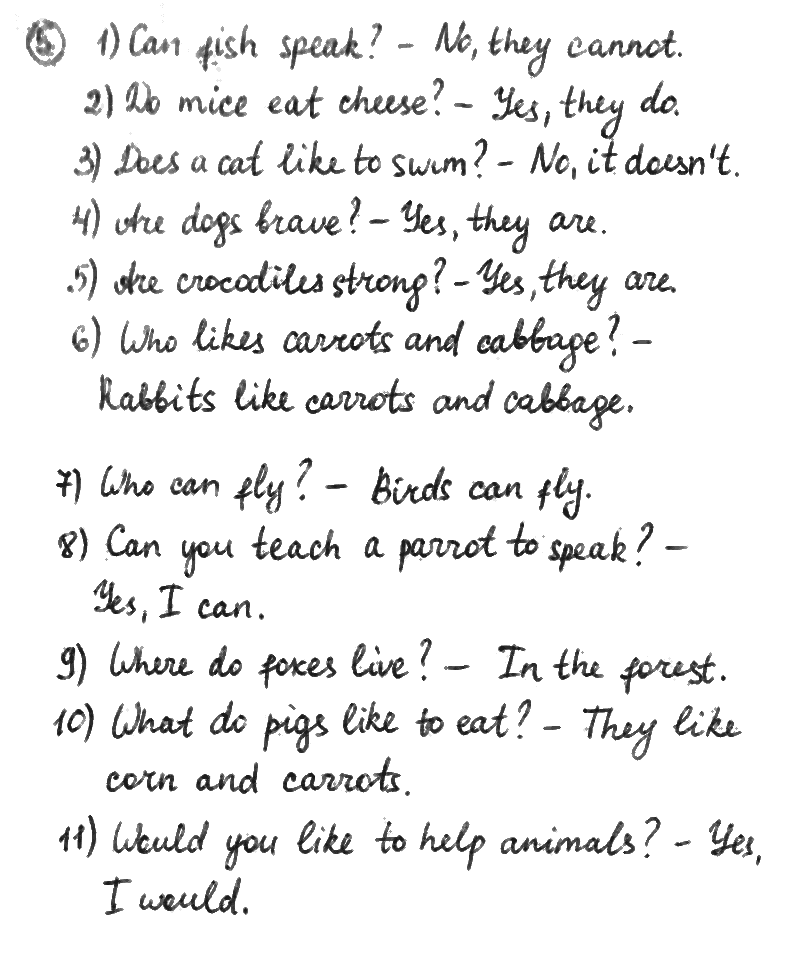 5 1) Can fish speak? – No, they cannot.
2) Do mice eat cheese? – Yes, they do.
3) Does a cat like to swim? – No, it doesn't.
4) Are dogs brave? – Yes, they are.
5) Are crocodiles strong? – Yes, they are.
6) Who likes carrots and cabbage? –
Rabbits like carrots and cabbage.
7) Who can fly? – Birds can fly.
8) Can you teach a parrot to speak? –
Yes, I can.
9) Where do foxes live? – In the forest.
10) What do pigs like to eat? – They like
corn and carrots.
11) Would you like to help animals? – Yes,
I would.